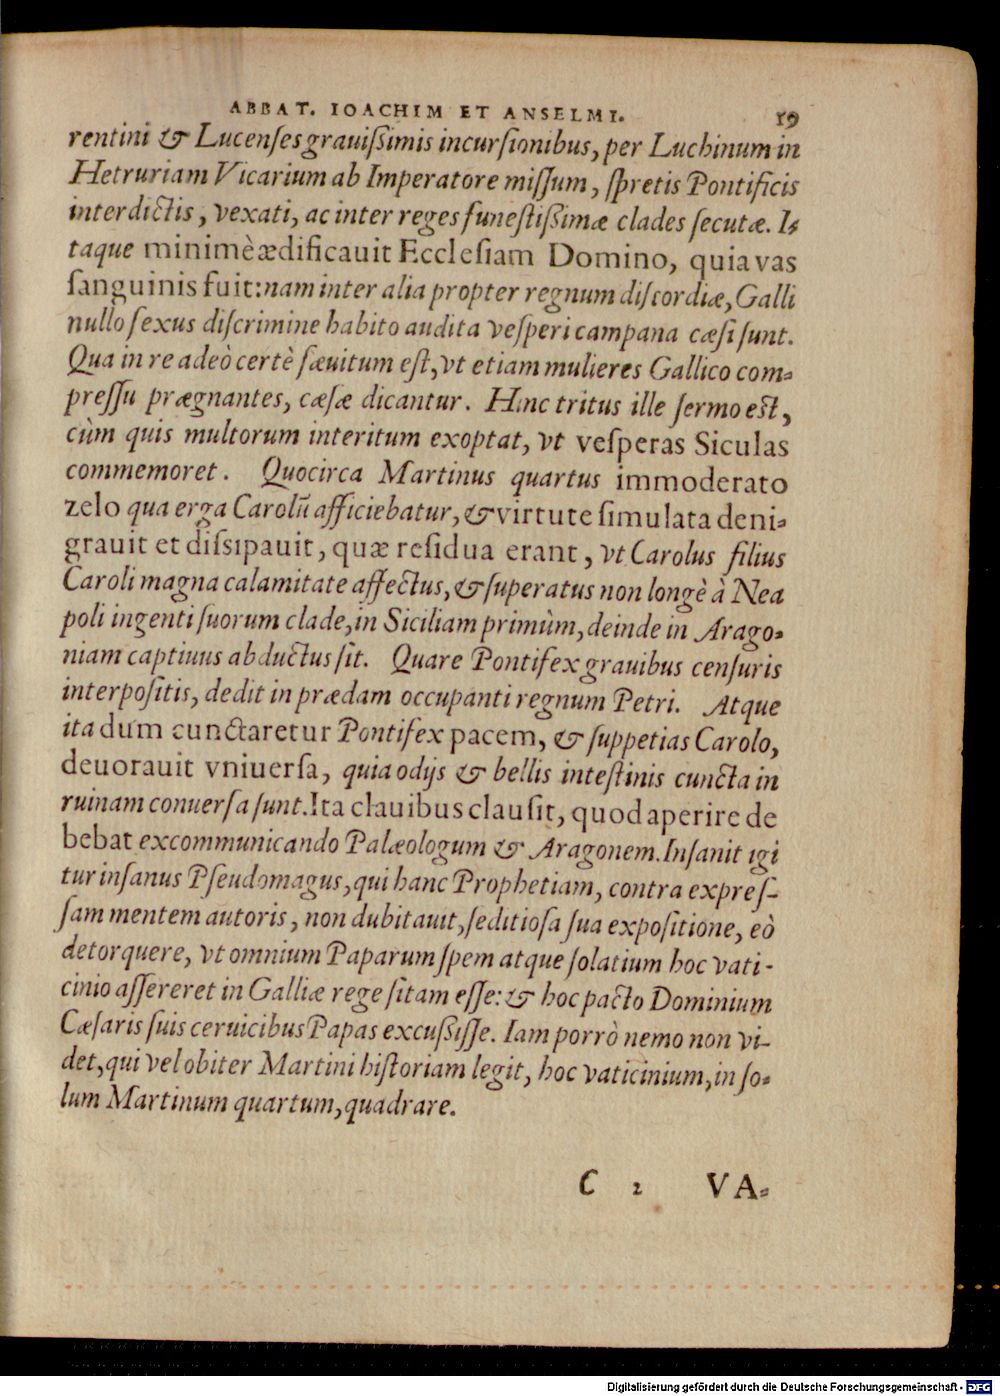 ABBAT. IOACHIM ET ANSELMI. 19
rentini & Lucenſes grauiſſimis incurſionibus, per Luchinum in
Hetruriam Vicarium ab Imperatore miſſum, ſpretis Pontificis
interdictis, vexati, ac inter reges funeſtiſſimæ clades ſecutæ. I⸗
taque minimè ædificauit Eccleſiam Domino, quia vas
ſanguinis fuit: nam inter alia propter regnum diſcordiæ, Galli
nullo ſexus diſcrimine habito audita veſperi campana cæſi ſunt.
Qua in re adeò certè ſæuitum eſt, vt etiam mulieres Gallico com⸗
preſſu prægnantes, cæſæ dicantur. Hinc tritus ille ſermo est,
cùm quis multorum interitum exoptat, vt veſperas Siculas
commemoret. Quocirca Martinus quartus immoderato
zelo qua erga Carolũ afficiebatur, & virtute ſimulata deni⸗
grauit et diſsipauit, quæ reſidua erant, vt Carolus filius
Caroli magna calamitate affectus, & ſuperatus non longè à Nea
poli ingenti ſuorum clade, in Siciliam primùm, deinde in Arago⸗
niam captiuus abductus ſit. Quare Pontifex grauibus cenſuris
interpoſitis, dedit in prædam occupanti regnum Petri. Atque
ita dum cunctaretur Pontifex pacem, & ſuppetias Carolo,
deuorauit vniuerſa, quia odijs & bellis inteſtinis cuncta in
ruinam conuerſa ſunt. Ita clauibus clauſit, quod aperire de
bebat excommunicando Palæologum & Aragonem. Inſanit igi
tur inſanus Pſeudomagus, qui hanc Prophetiam, contra expreſ-
ſam mentem autoris, non dubitauit, ſeditioſa ſua expoſitione, eò
detorquere, vt omnium Paparum ſpem atque ſolatium hoc vati-
cinio aſſereret in Galliæ rege ſitam eſſe: & hoc pacto Dominium
Cæſaris ſuis ceruicibus Papas excuſſiſſe. Iam porrò nemo non vi-
det, qui vel obiter Martini hiſtoriam legit, hoc vaticinium, in ſo⸗
lum Martinum quartum, quadrare.
C 2 VA⸗
Digitalisierung gefördert durch die Deutsche Forschungsgemeinschaft - DFG